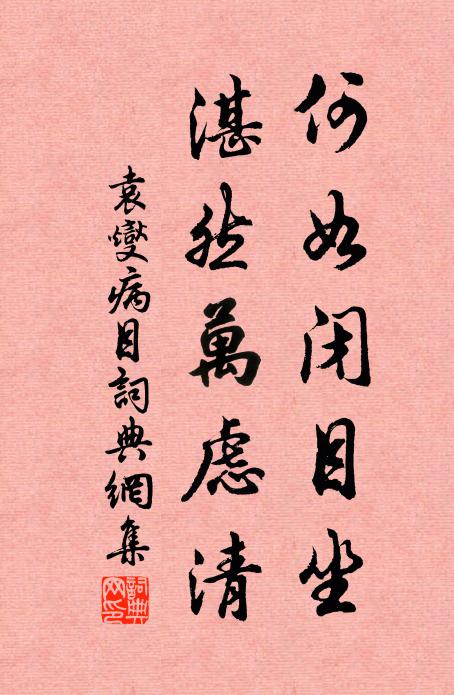 何如闭目坐
湛然萬慮清
袁燮病目詞典網集
詞典网印